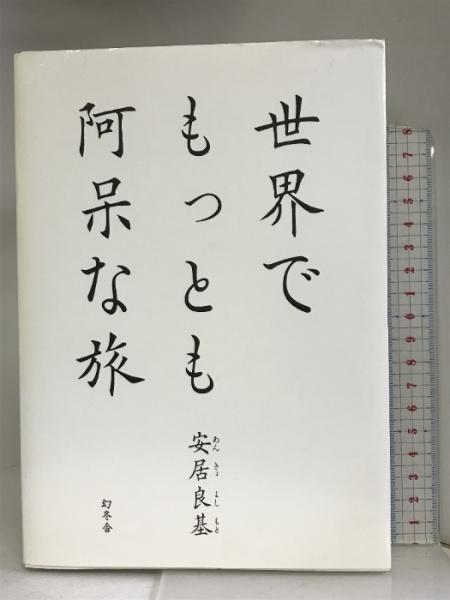 世界で
もっとも
阿呆な旅
安居良基
あんきょよしもと
幻冬舎
8
7
6
5
4
3
2
1
0
9
8
7
6
5
4
3
2
1